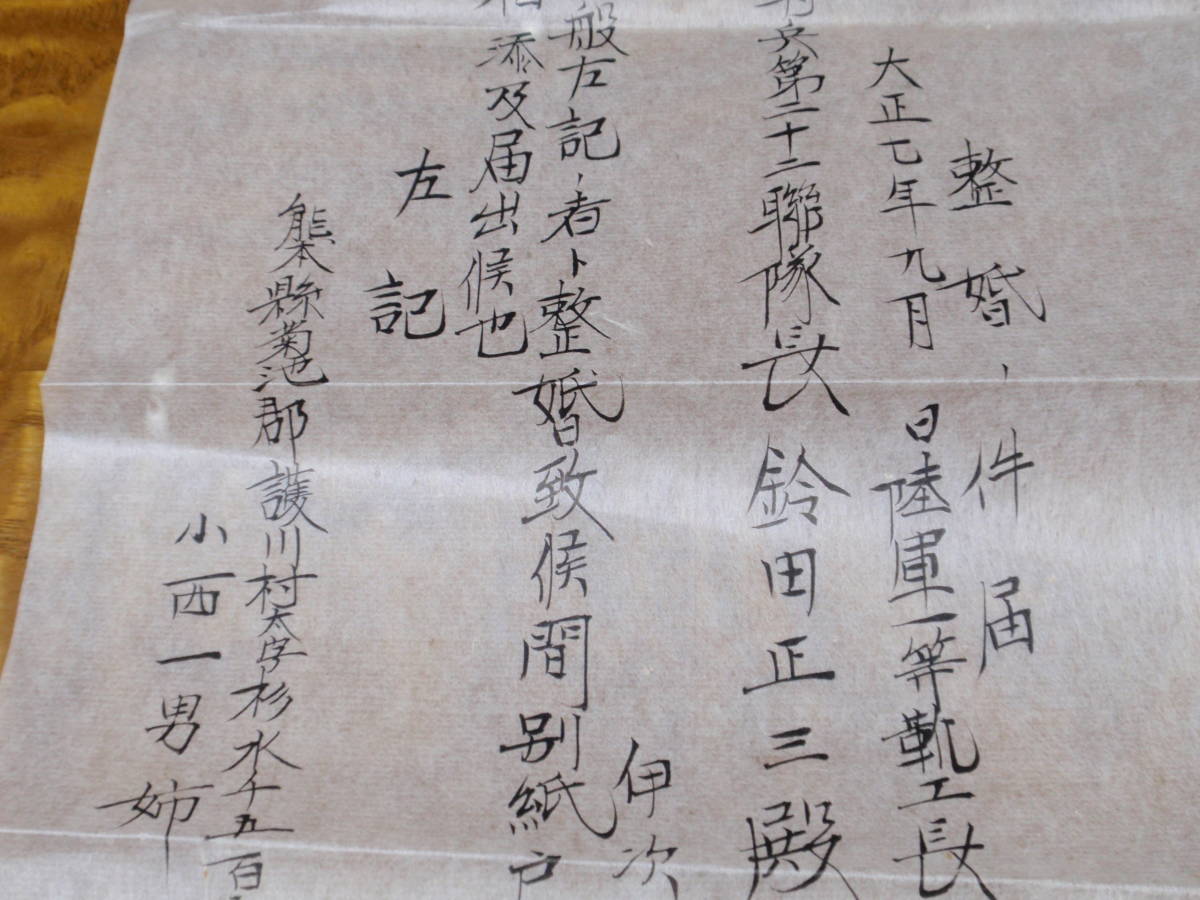 整婚ノ件届
大正七年九月 日陸軍一等靴工長
兵第二十二聯隊長 鈴田正三殿
伊次
般左記ノ者ト整婚致候間別紙戸
添及届出候也
左記
熊本縣菊池郡護川村大字杉水千五百
小西一男姉